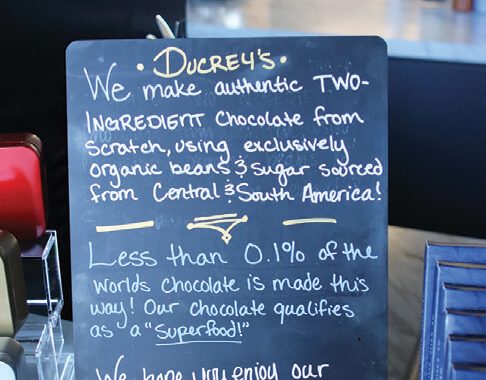 • DUCREY'S •
We make authentic TWO-
INGREDIENT chocolate from
scratch, using exclusively
organic beans & sugar sourced
from Central & South America!
Less than 0.1% of the
worlds chocolate is made this
way! Our chocolate qualifies
as a "Superfood!"
We hope you enjoy our